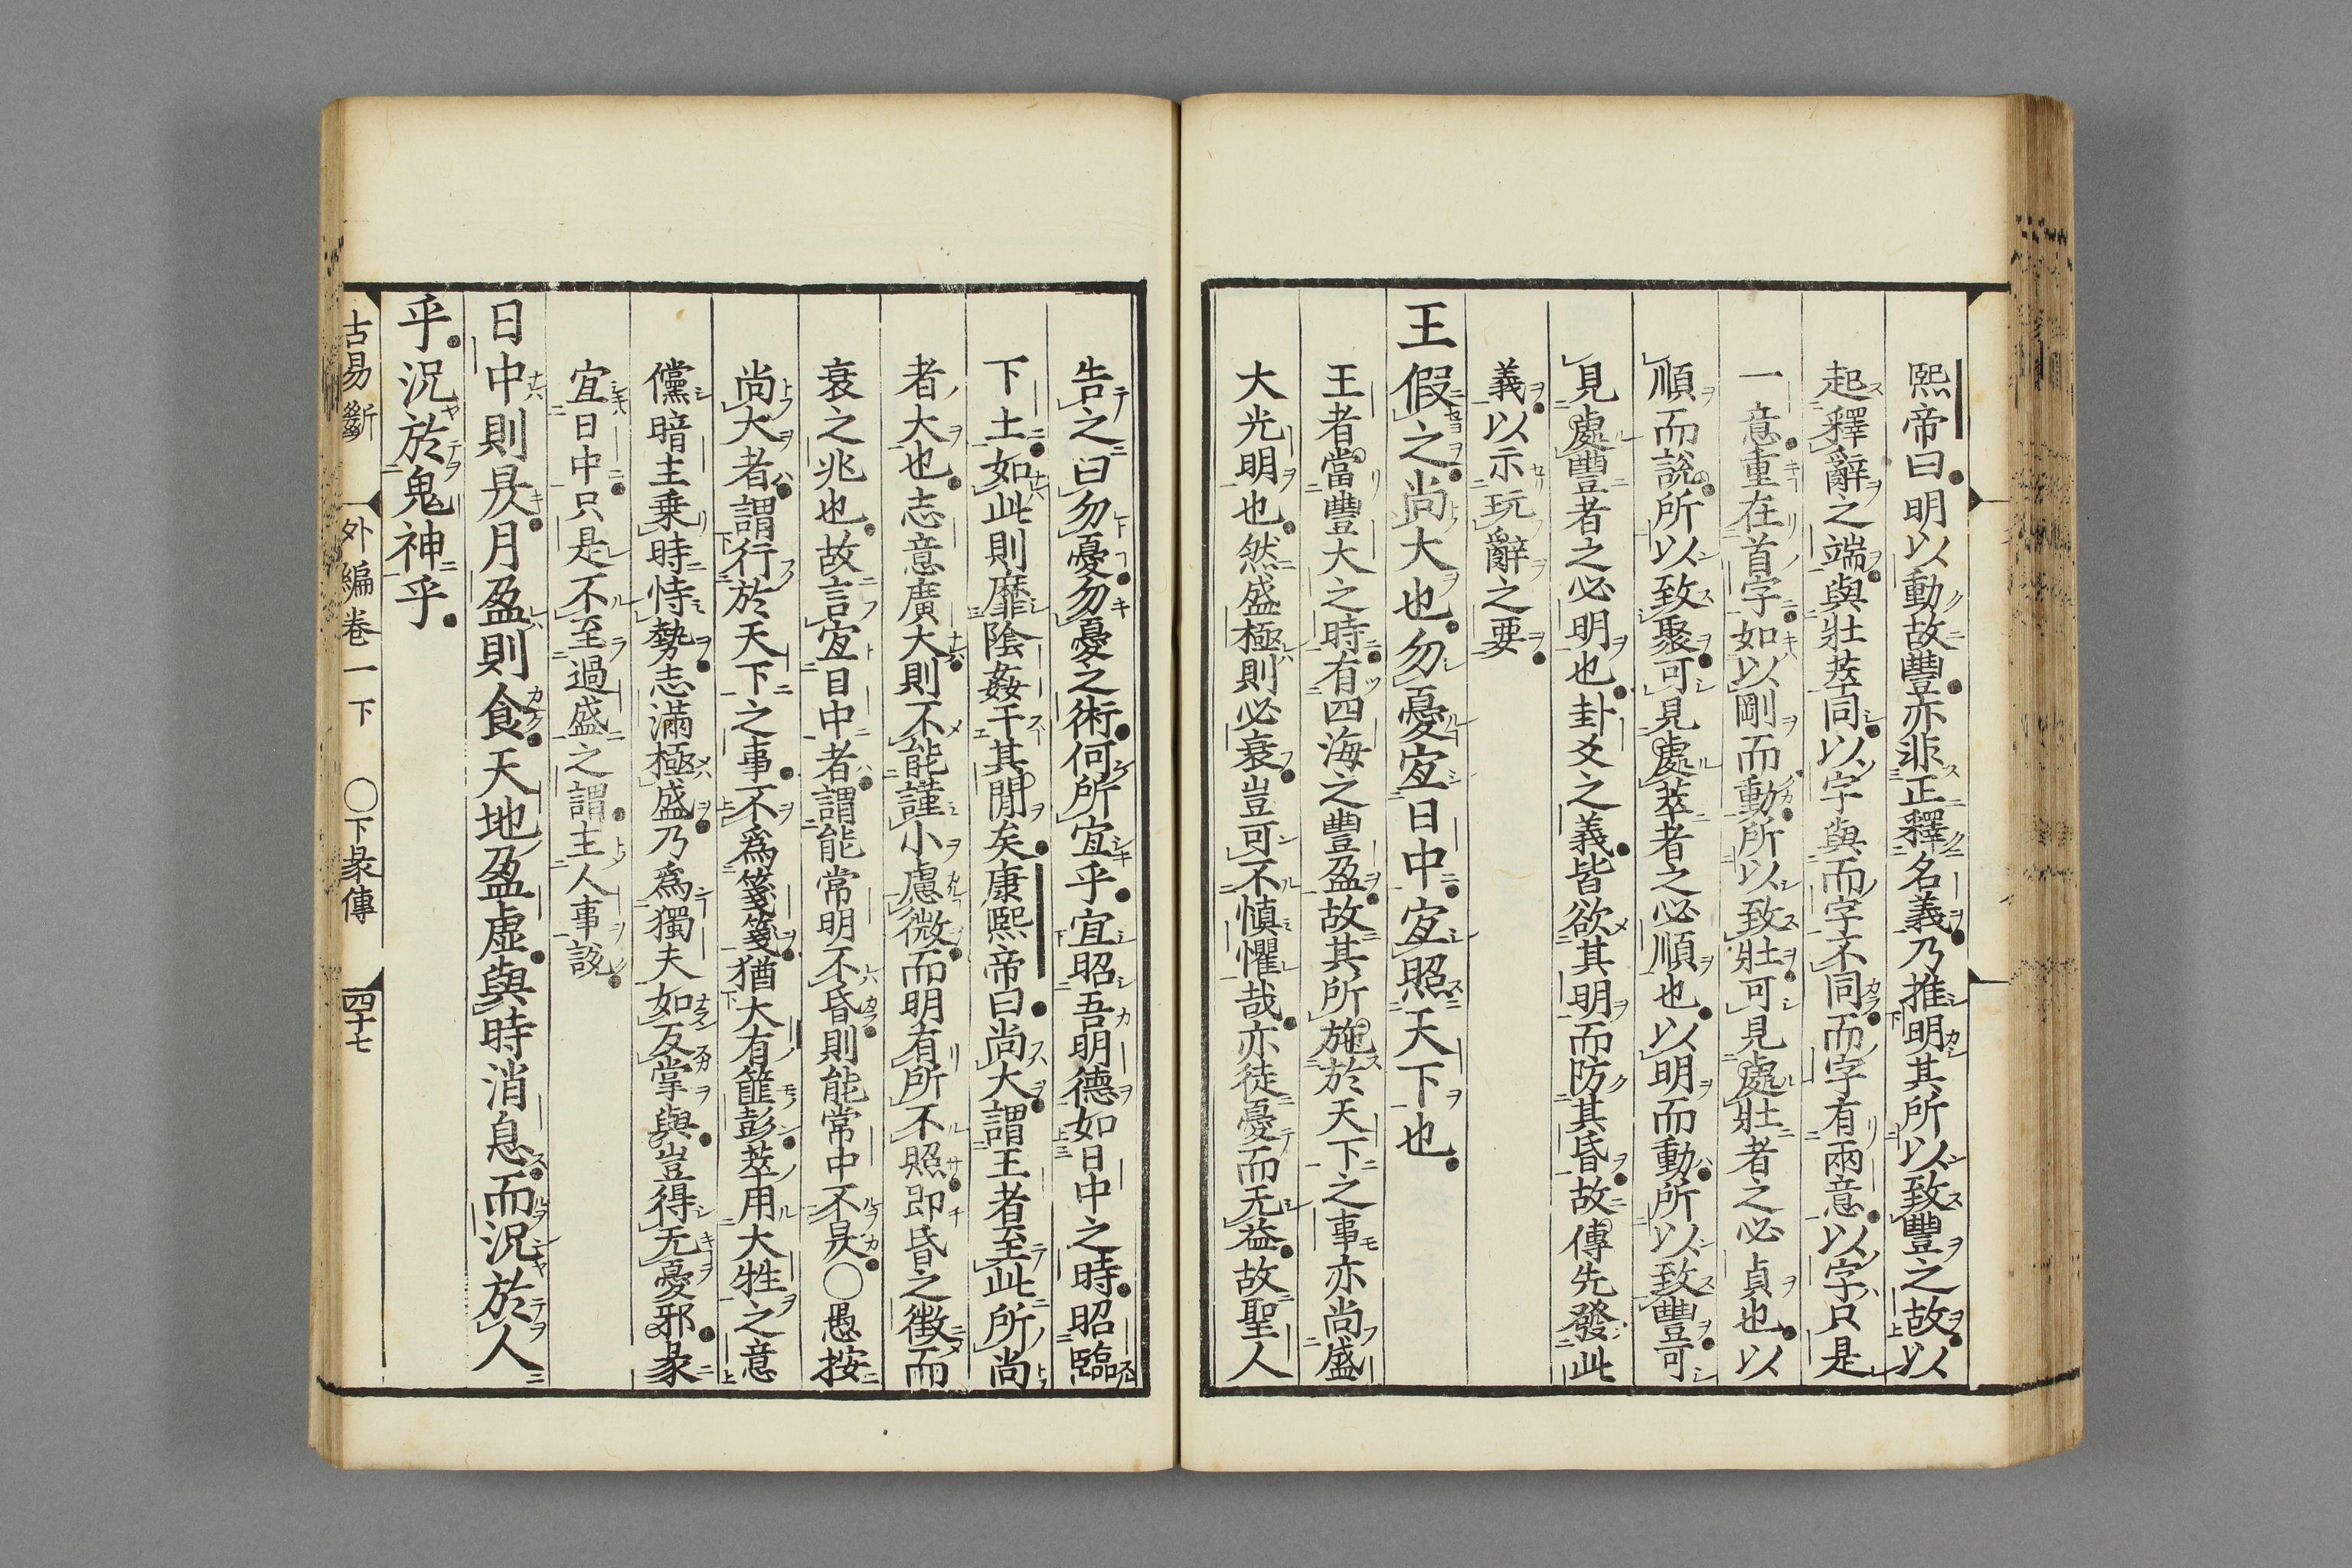 熙帝曰明以動故豐亦非正釋名義乃推明其所以致豐之故以
起釋辭之端與壯萃同以字與而字不同而字有兩意以字只是
一意重在首字如以剛而動所以致壯可見處壯者之必貞也以
順而說所以致聚可見處萃者之必順也以明而動所以致豐可
見處豐者之必明也卦爻之義皆欲其明而防其昏故傳先發此
義以示玩辭之要
王假之尚大也勿憂宜日中宜照天下也
王者當豐大之時有四海之豐盈故其所施於天下之事亦尚盛
大光明也然盛極則必衰豈可不慎懼哉亦徒憂而无益故聖人
告之曰勿憂勿憂之術何所宜乎宜昭吾明德如日中之時昭臨
下土如此則靡陰姦干其閒矣康熙帝曰尚大謂王者至此所尚
者大也志意廣大則不能謹小慮微而明有所不照即昏之徵而
衰之兆也故言宜日中者謂能常明不昏則能常中不昃〇愚按
尚大者謂行於天下之事不為箋箋猶大有匪彭萃用大牲之意
儻暗主乘時恃勢志滿極盛乃為獨夫如反掌與豈得无憂邪彖
宜日中只是不至過盛之謂主人事說
日中則昃月盈則食天地盈虛與時消息而況於人
乎況於鬼神乎
古易斷 外編卷一下 〇下彖傳 四十七